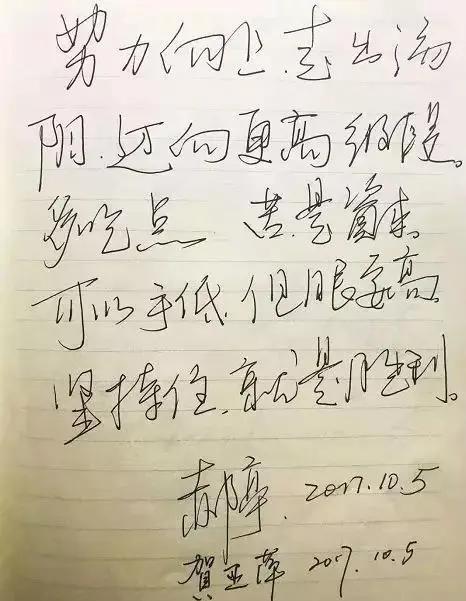 努力向上.走出汤
阴.迈向更高级段。
多吃点 苦.是资本.
可以手低.但眼要高.
坚持住.就是胜利。
郝亭. 2017.10.5
贺亚萍 2017.10.5